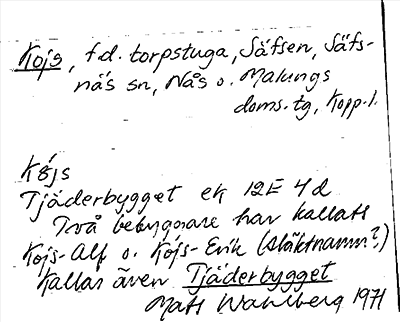 Kojs, f.d. torpstuga, Säfsen, Säfs-
näs sn, Nås o. Malungs
doms. tg, Kopp. l.
Kojs
Tjäderbygget ek 12E 4d
Två bebyggare har kallats
Kojs-Alf o. Kojs-Erik (släktnamn?)
Kallas även Tjäderbygget
Mats Wahlberg 1971